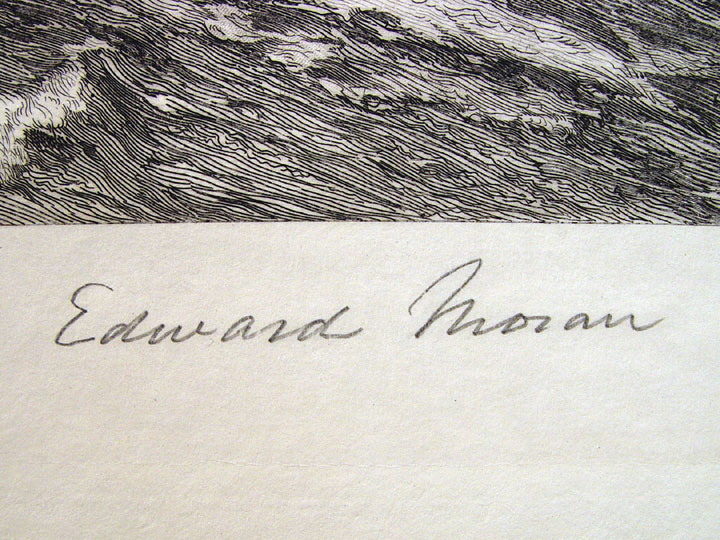 Edward Moran